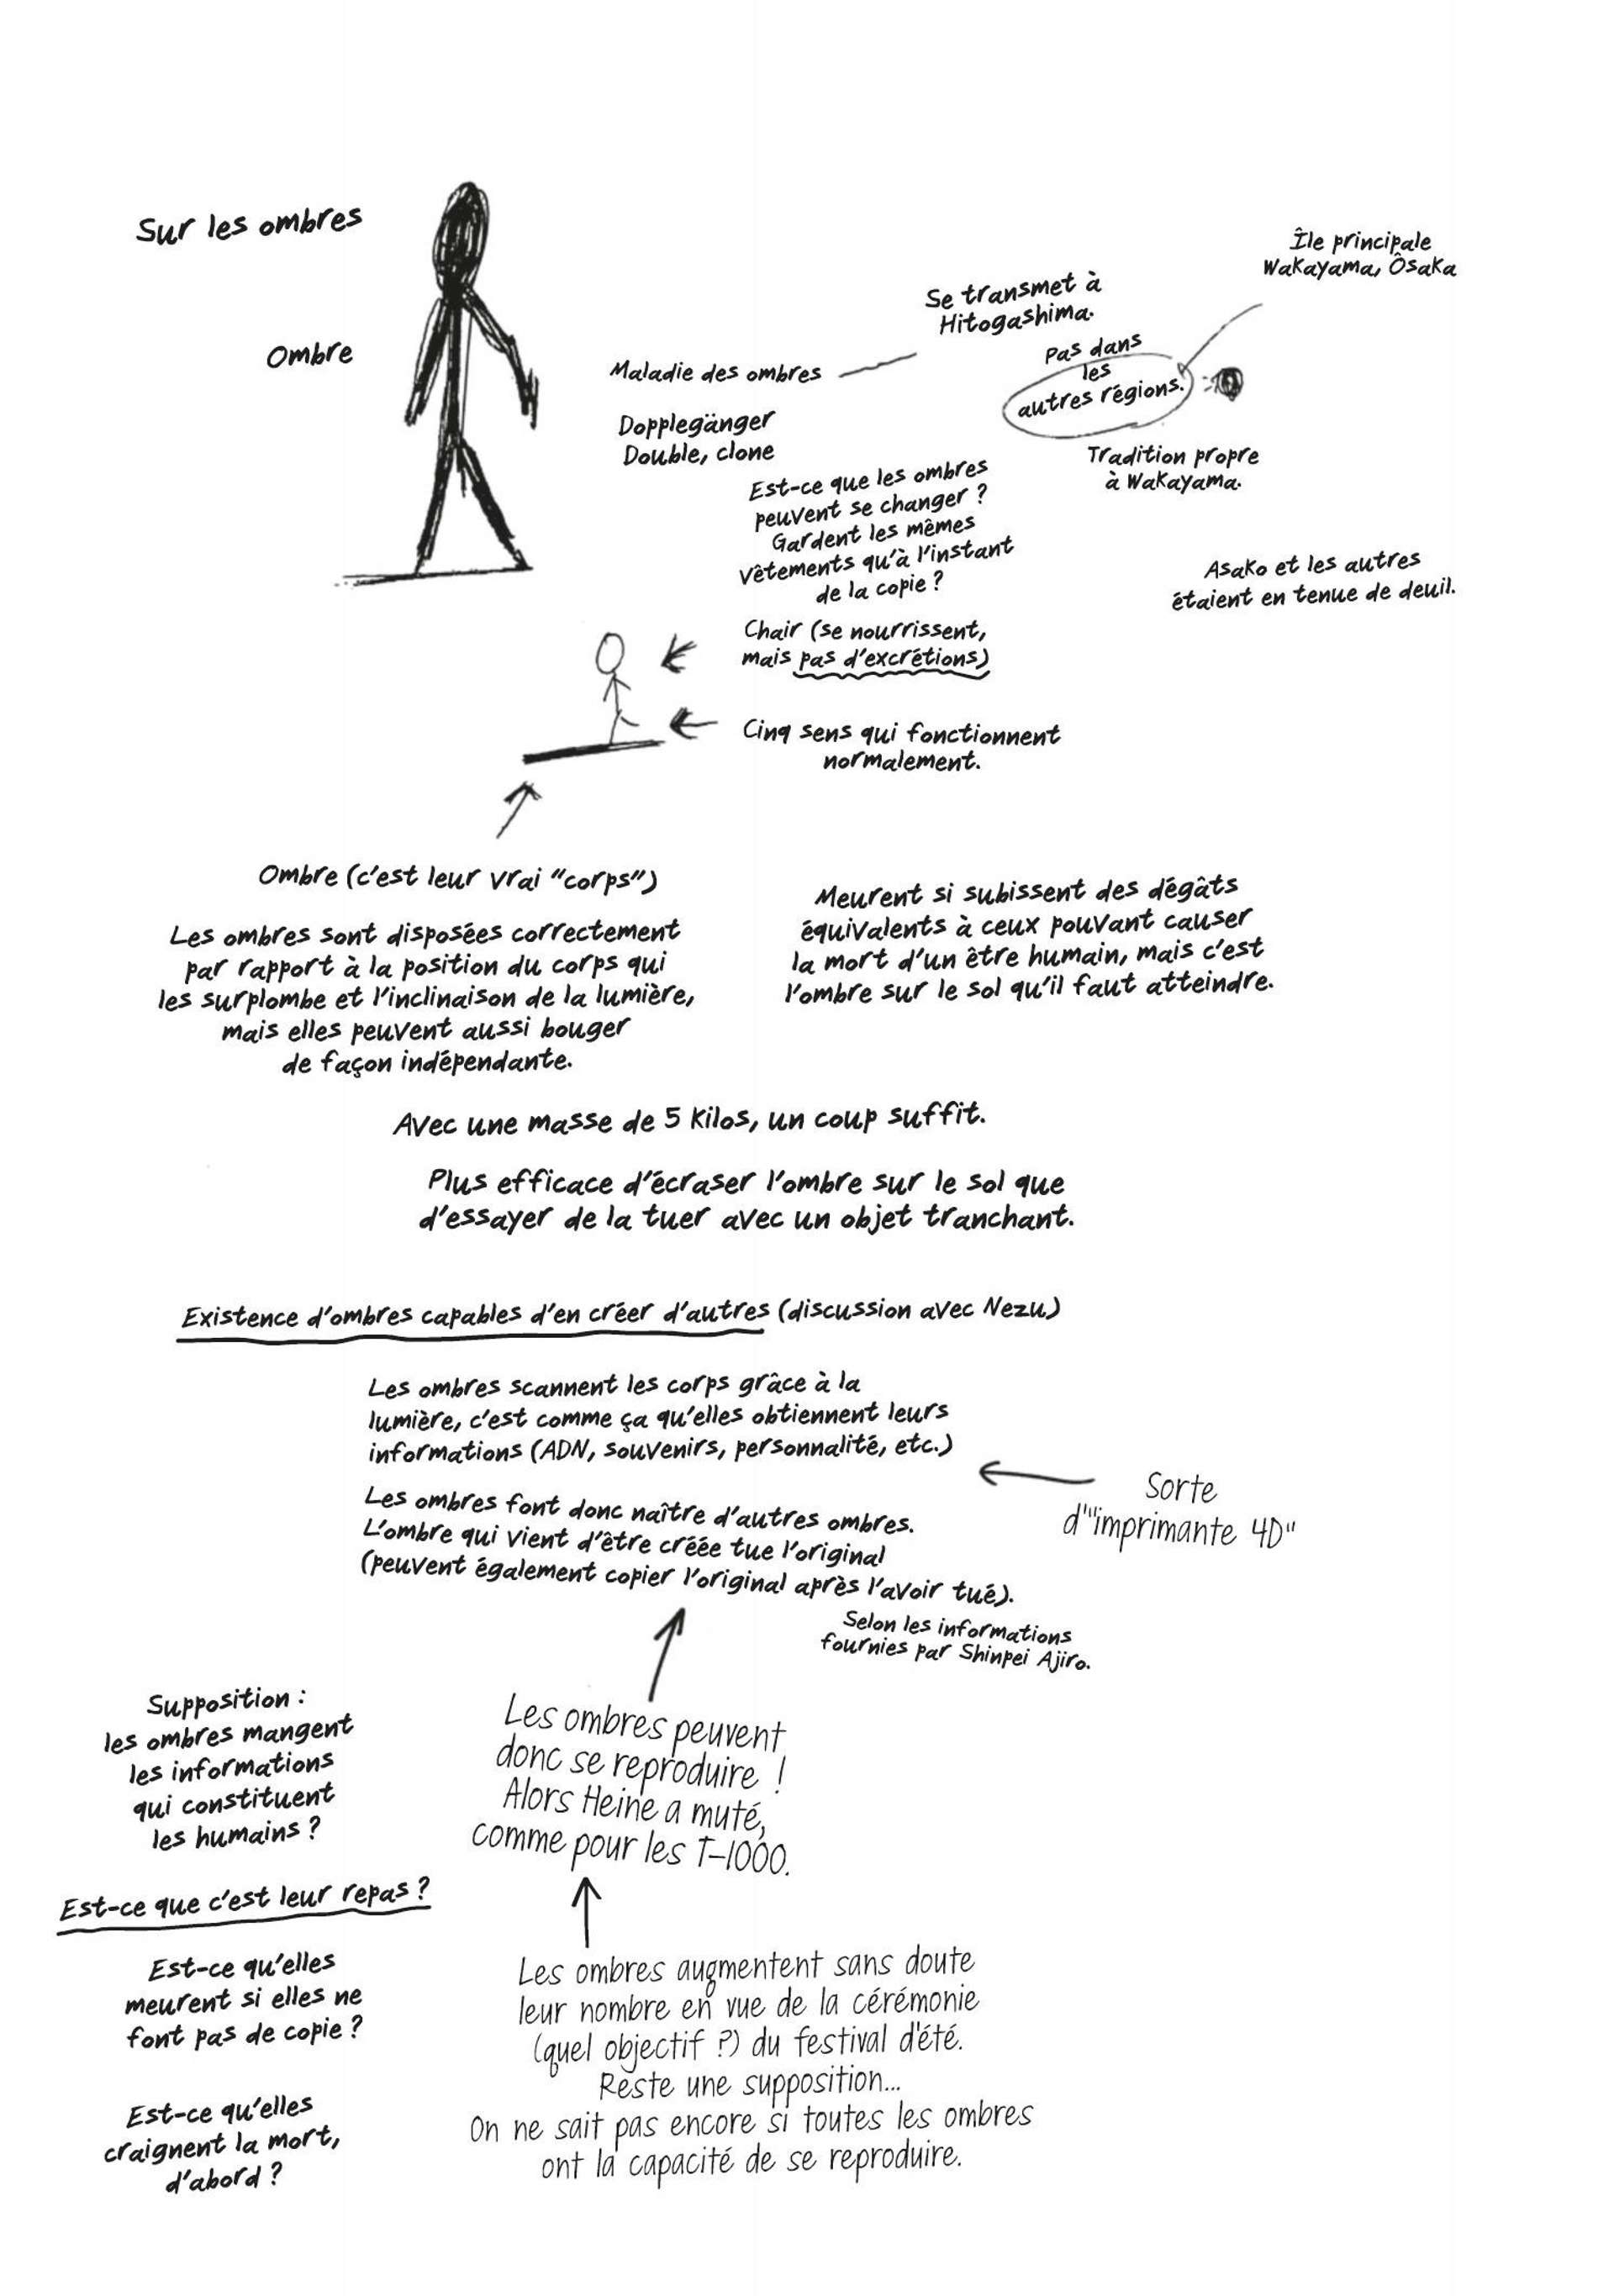 Sur les ombres
Ombre
Maladie des ombres
Dopplegänger
Double, clone
Se transmet à
Hitogashima.
Pas dans
les
autres régions.
Île principale
Wakayama, Ôsaka
Tradition propre
à Wakayama.
Est-ce que les ombres
peuvent se changer ?
Gardent les mêmes
vêtements qu'à l'instant
de la copie ?
Asako et les autres
étaient en tenue de deuil.
Chair (se nourrissent,
mais pas d'excrétions)
Cinq sens qui fonctionnent
normalement.
Ombre (c'est leur vrai "corps")
Les ombres sont disposées correctement
par rapport à la position du corps qui
les surplombe et l'inclinaison de la lumière,
mais elles peuvent aussi bouger
de façon indépendante.
Meurent si subissent des dégâts
équivalents à ceux pouvant causer
la mort d'un être humain, mais c'est
l'ombre sur le sol qu'il faut atteindre.
Avec une masse de 5 kilos, un coup suffit.
Plus efficace d'écraser l'ombre sur le sol que
d'essayer de la tuer avec un objet tranchant.
Existence d'ombres capables d'en créer d'autres (discussion avec Nezu)
Les ombres scannent les corps grâce à la
lumière, c'est comme ça qu'elles obtiennent leurs
informations (ADN, souvenirs, personnalité, etc.)
Les ombres font donc naître d'autres ombres.
L'ombre qui vient d'être créée tue l'original
(peuvent également copier l'original après l'avoir tué).
Sorte
d'"imprimante 4D"
Selon les informations
fournies par Shinpei Ajiro.
Supposition :
les ombres mangent
les informations
qui constituent
les humains ?
Est-ce que c'est leur repas ?
Est-ce qu'elles
meurent si elles ne
font pas de copie ?
Est-ce qu'elles
craignent la mort,
d'abord ?
Les ombres peuvent
donc se reproduire !
Alors Heine a muté,
comme pour les T-1000.
Les ombres augmentent sans doute
leur nombre en vue de la cérémonie
(quel objectif ?) du festival d'été.
Reste une supposition...
On ne sait pas encore si toutes les ombres
ont la capacité de se reproduire.